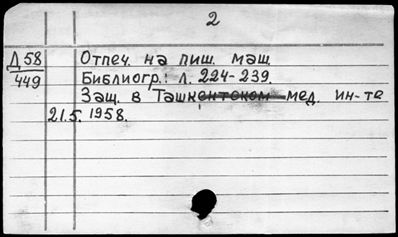 2
Д 58 Отпеч. на пиш. маш.
449 Библиогр.: л. 224-239.
Защ. в Ташкентском мед. ин-те
21.5.1958.